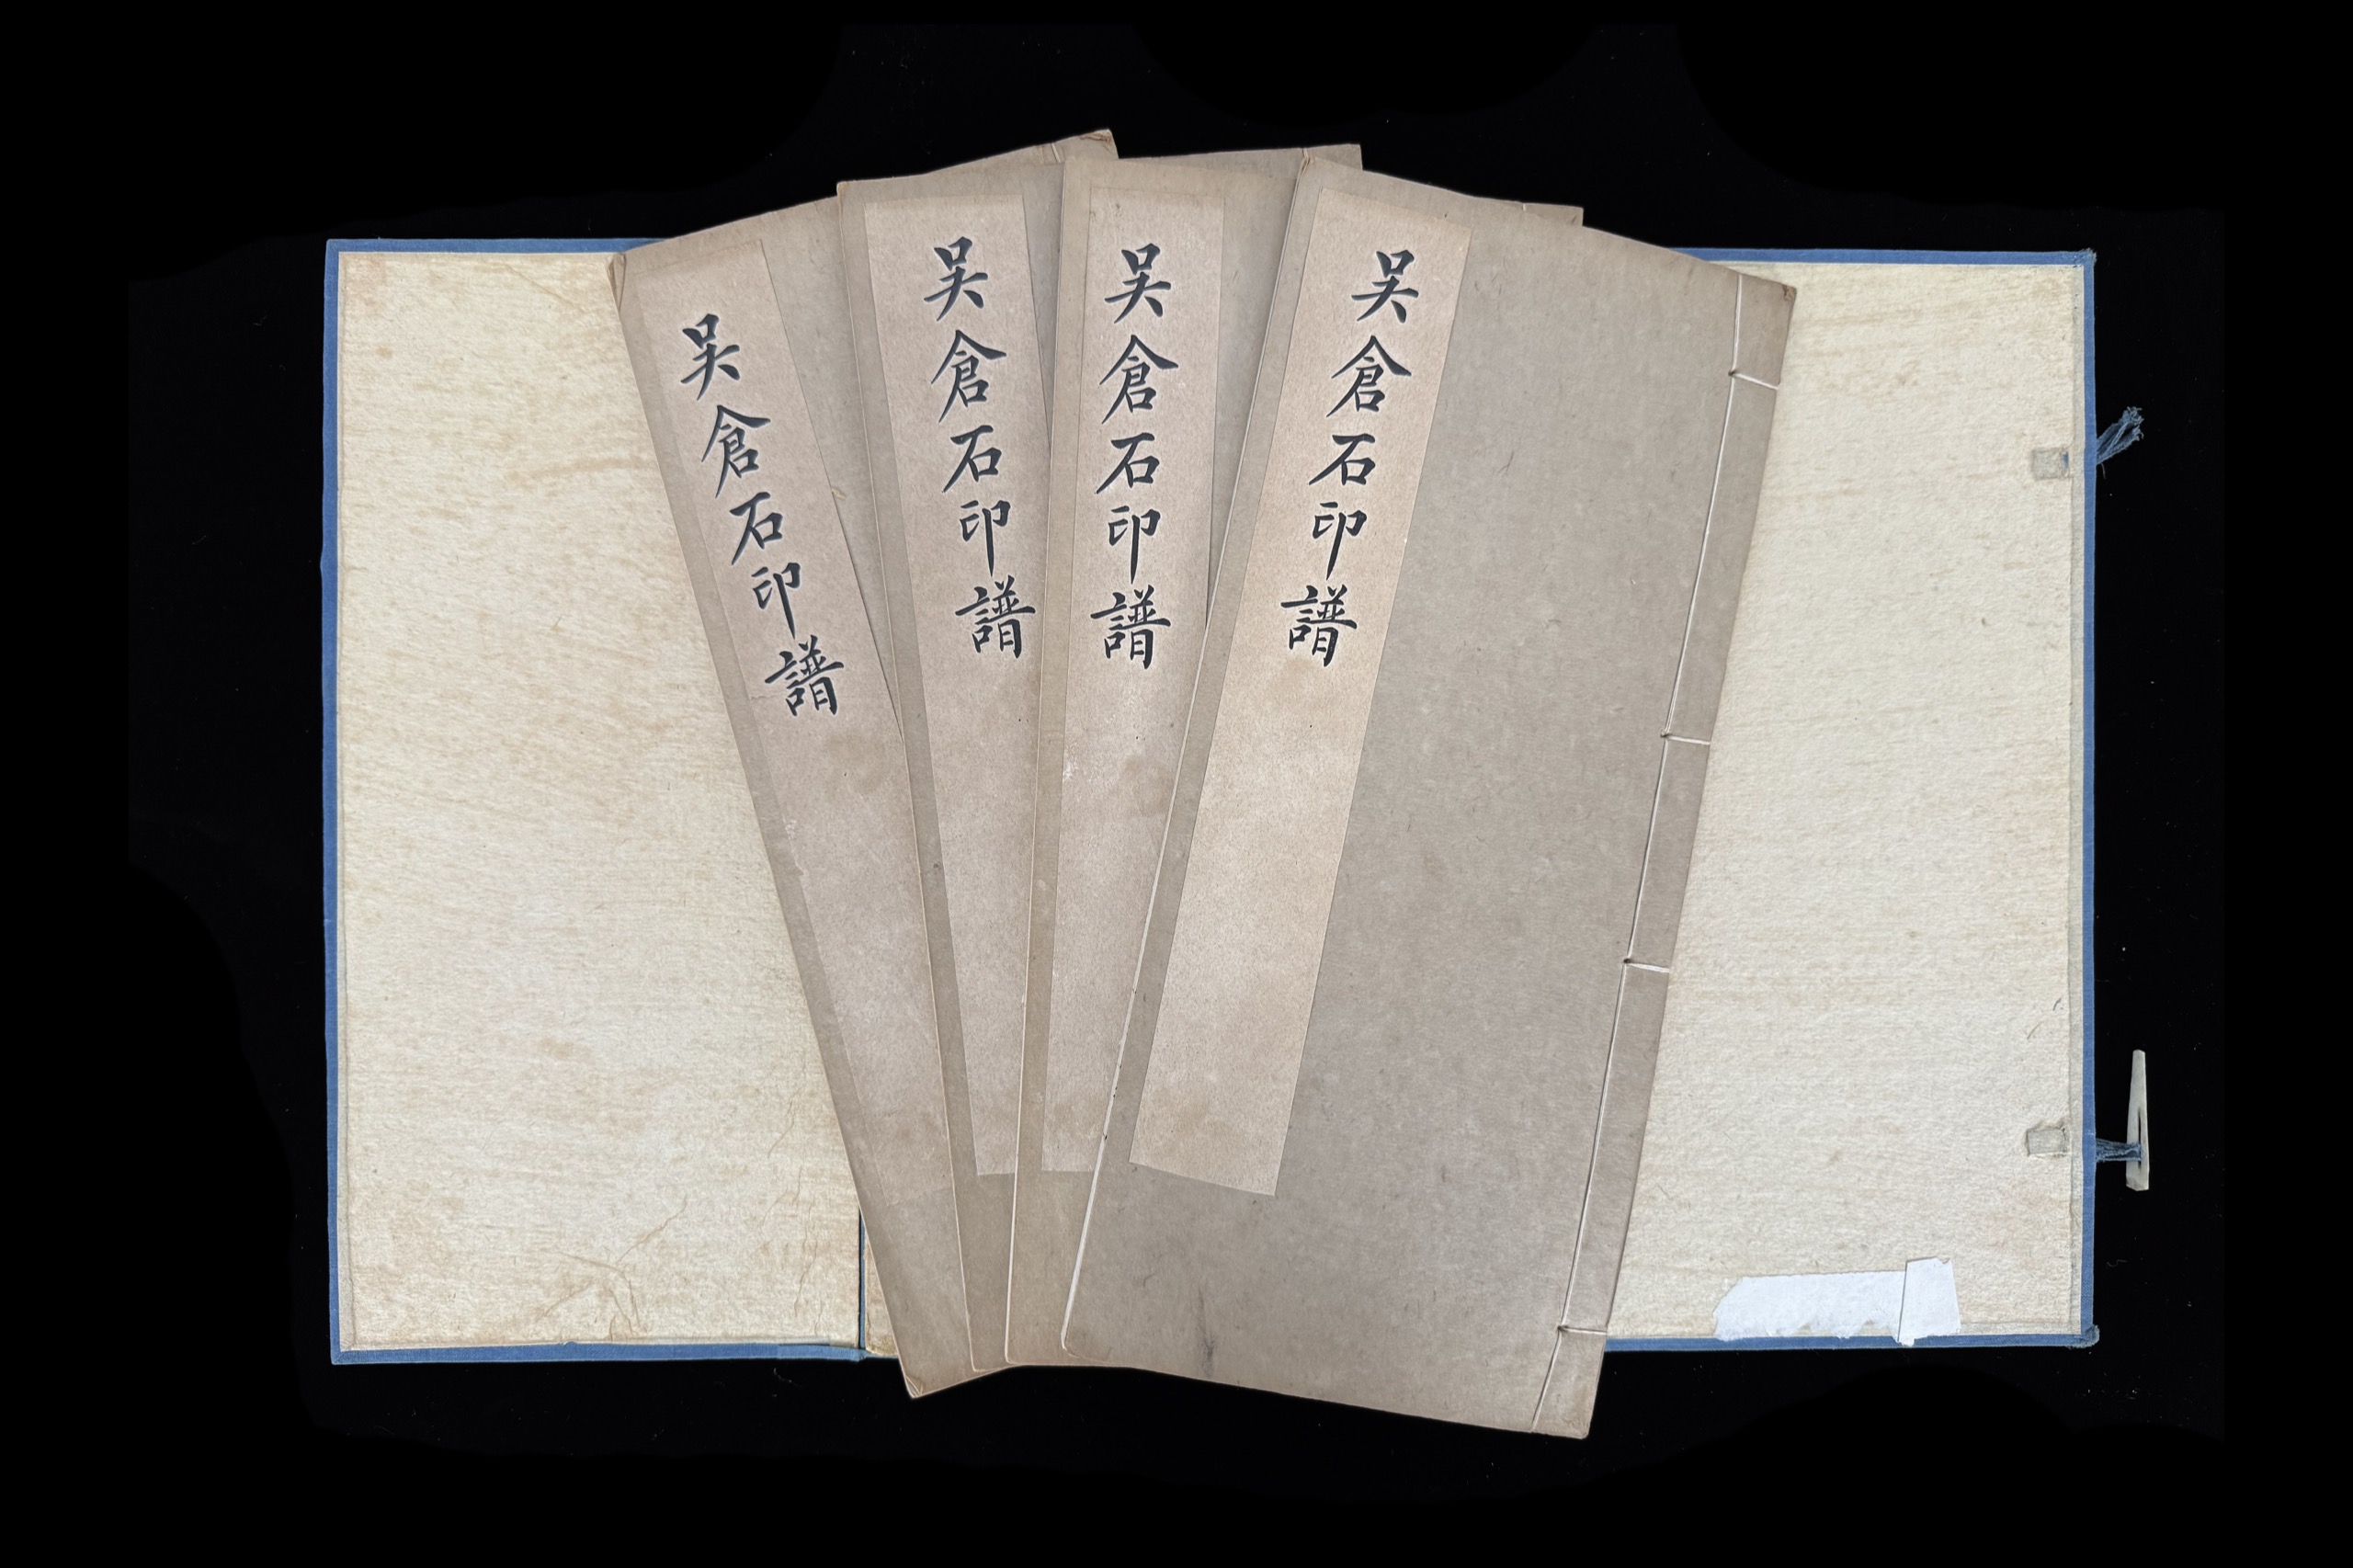 吴倉石印譜
吴倉石印譜
吴倉石印譜
吴倉石印譜